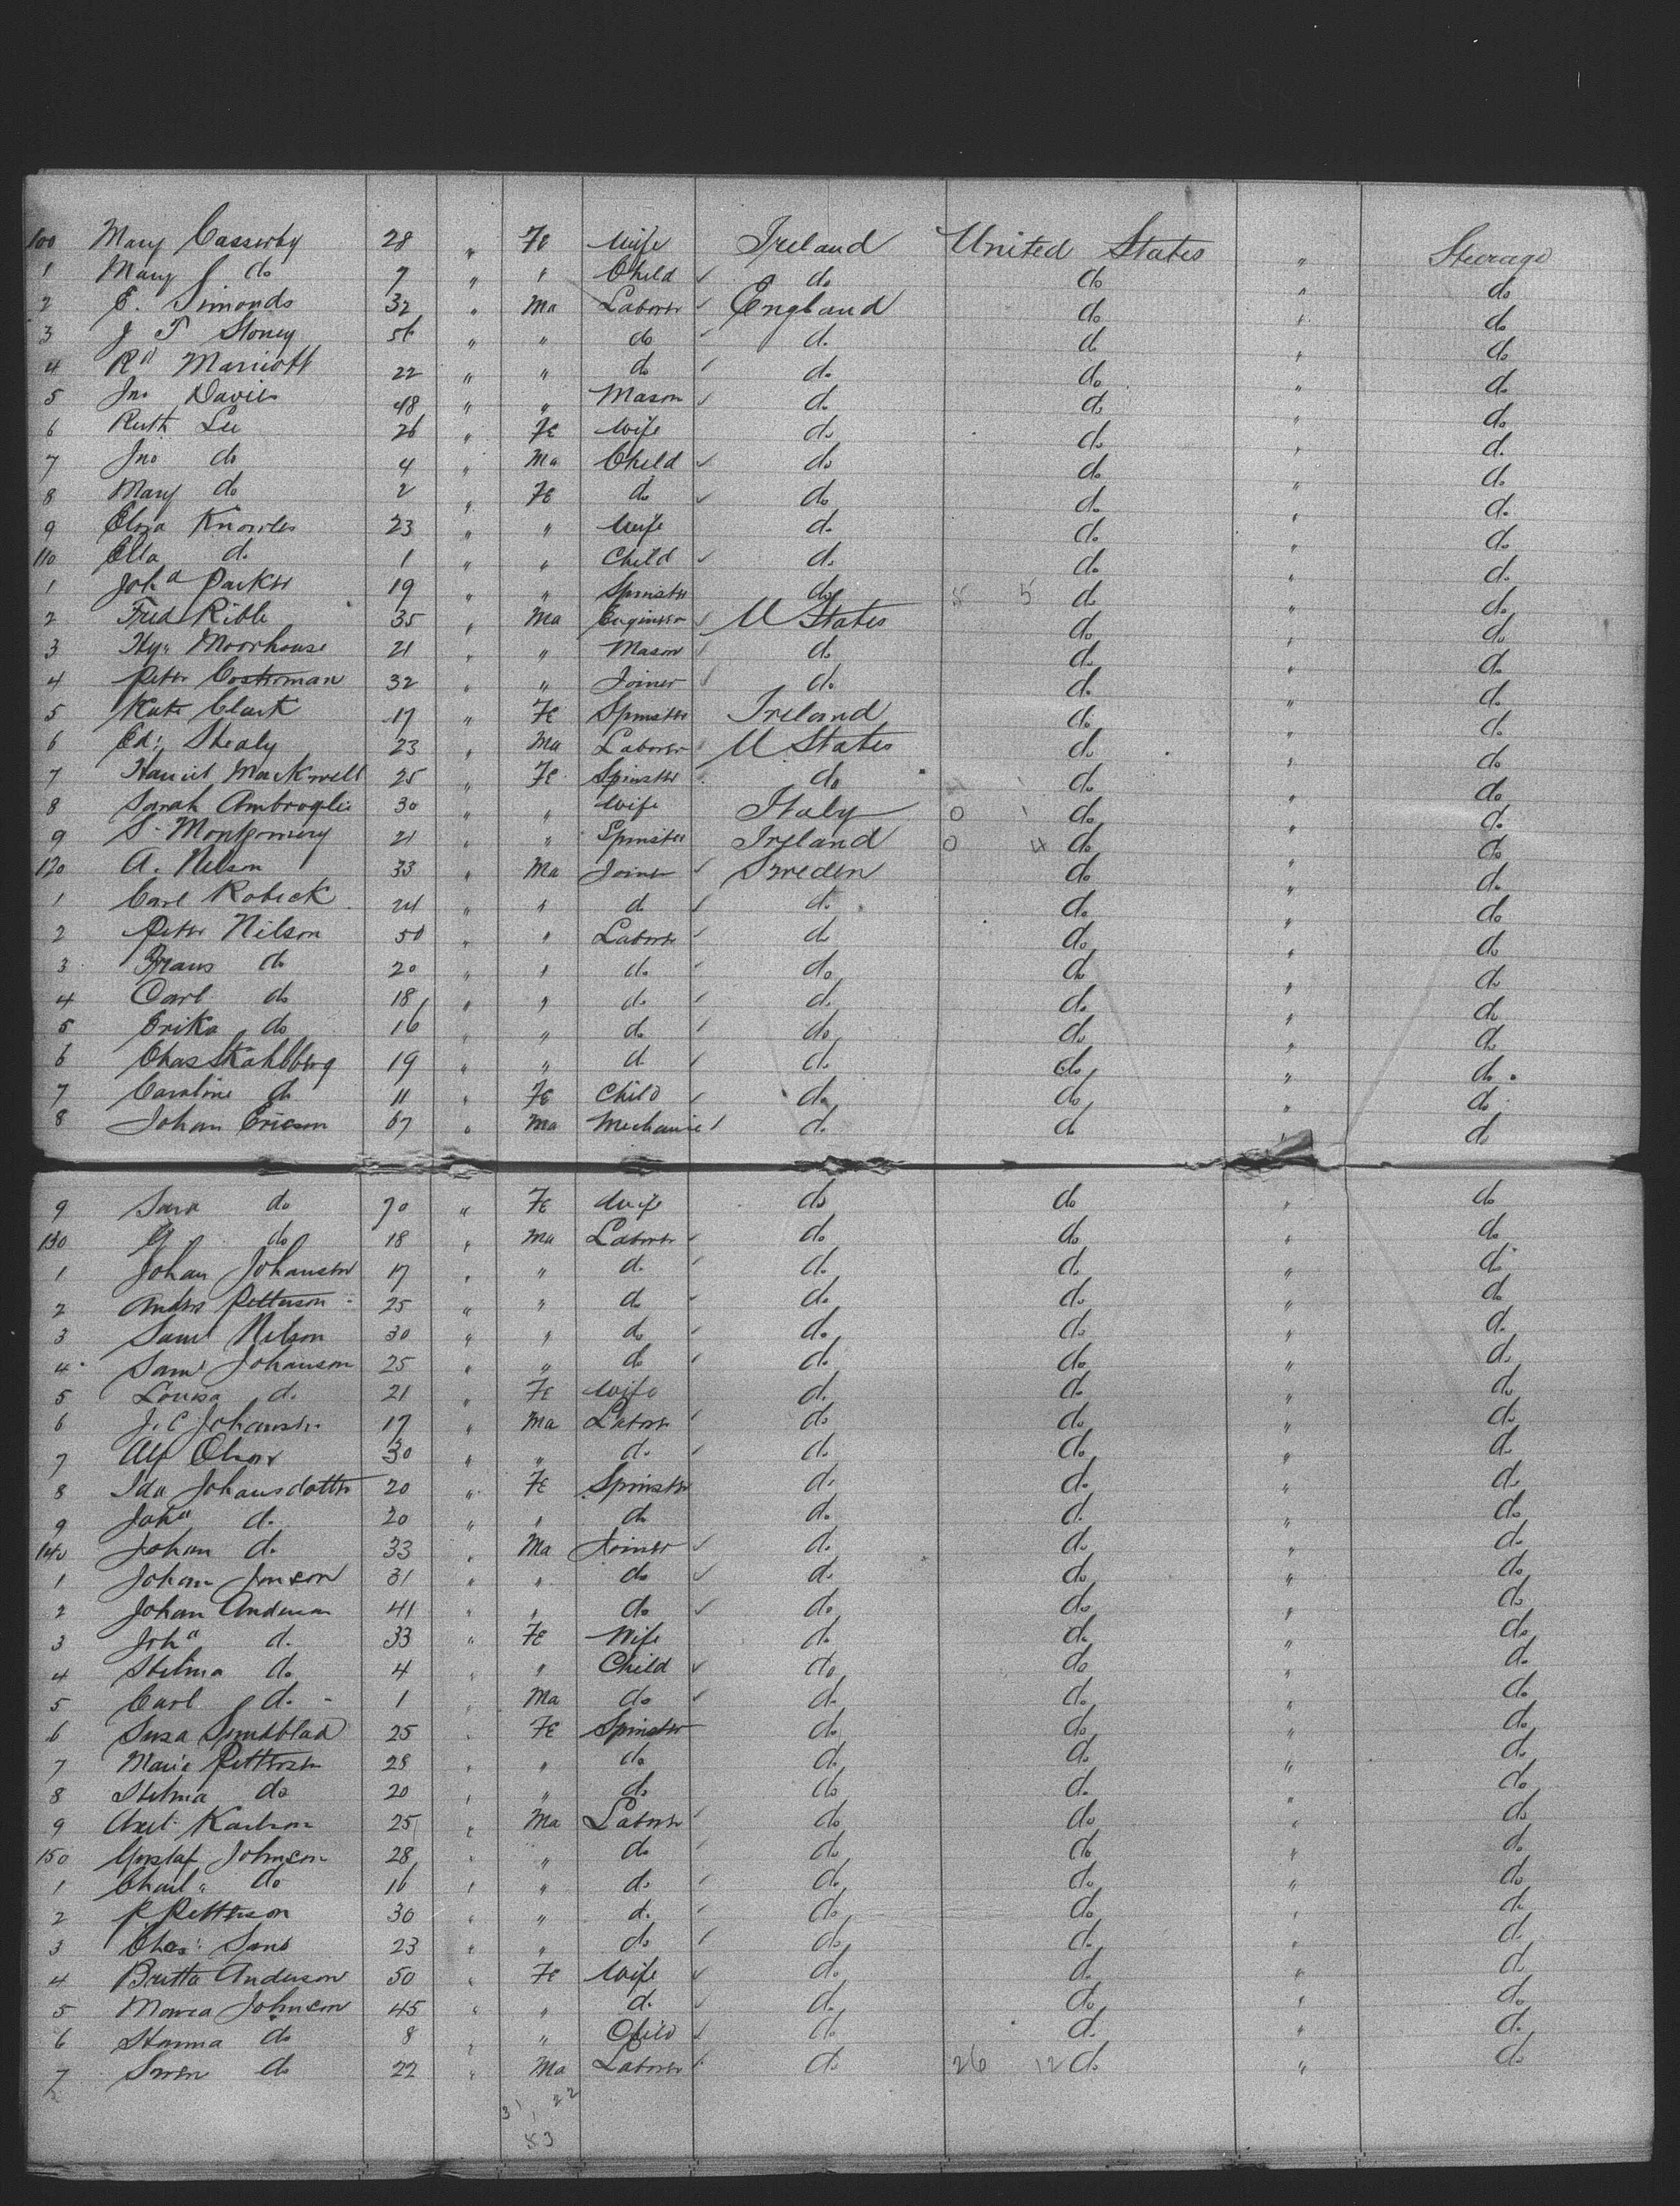 100 Mary Casserby 28 " Fe Wife Ireland United States " Steerage
1 Mary do 7 " " Child ✓ do do " do
2 E. Simonds 32 " Ma Laborer ✓ England do " do
3 J T Stoney 56 " " do ✓ do do " do
4 Rd Marriott 22 " " do ✓ do do " do
5 Jno Davies 48 " " Mason ✓ do do " do
6 Ruth Lee 26 " Fe Wife do do " do
7 Jno do 4 " Ma Child ✓ do do " do
8 Mary do 2 " Fe do ✓ do do " do
9 Eliza Knowles 23 " " Wife do do " do
110 Ella do 1 " " Child ✓ do do " do
1 Joha Parker 19 " " Spinster do 5 5 do " do
2 Fred Rible 35 " Ma Engineer ✓ U States do " do
3 Hy" Moorhouse 21 " " Mason ✓ do do " do
4 Peter Costerman 32 " " Joiner ✓ do do " do
5 Kate Clark 17 " Fe Spinster Ireland do " do
6 Ed: Shealy 23 " Ma Laborer U States do " do
7 Harriet Mackwell 25 " Fe Spinster do do " do
8 Sarah Ambroglie 30 " " Wife Italy 0 1 do " do
9 S. Montgomery 21 " " Spinster Ireland 0 4 do " do
120 A. Nelson 33 " Ma Joiner ✓ Sweden do " do
1 Carl Robeck 24 " " do ✓ do do " do
2 Peter Nilson 50 " " Laborer ✓ do do " do
3 Frans do 20 " " do ✓ do do " do
4 Carl do 18 " " do ✓ do do " do
5 Erika do 16 " " do ✓ do do " do
6 Chas Stahlberg 19 " " do ✓ do do " do
7 Caroline do 11 " Fe Child ✓ do do " do
8 Johan Ericson 67 " Ma Mechanic ✓ do do " do
9 Sara do 70 " Fe Wife do do " do
130 G do 18 " Ma Laborer ✓ do do " do
1 Johan Johanson 17 " " do ✓ do do " do
2 Anders Petterson 25 " " do ✓ do do " do
3 Saml Nilson 30 " " do ✓ do do " do
4 Saml Johanson 25 " " do ✓ do do " do
5 Louisa do 21 " Fe Wife do do " do
6 J. C Johanson 17 " Ma Laborer ✓ do do " do
7 Alf 30 " " do ✓ do do " do
8 Ida Johansdotter 20 " Fe Spinster do do " do
9 Joha do 20 " " do do do " do
140 Johan do 33 " Ma Joiner ✓ do do " do
1 Johan Jonson 31 " " do ✓ do do " do
2 Johan Anderson 41 " " do ✓ do do " do
3 Joha do 33 " Fe Wife do do " do
4 Helma do 4 " " Child ✓ do do " do
5 Carl do 1 " Ma do ✓ do do " do
6 Susa Sundblad 25 " Fe Spinster do do " do
7 Maria Petterson 28 " " do do do " do
8 Helma do 20 " " do do do " do
9 Axel Karlson 25 " Ma Laborer ✓ do do " do
150 Gustaf Johnson 28 " " do ✓ do do " do
1 Charl" do 16 " " do ✓ do do " do
2 P Petterson 30 " " do ✓ do do " do
3 Chas: Sand 23 " " do ✓ do do " do
4 Britta Anderson 50 " Fe Wife ✓ do do " do
5 Johnson 45 " " do ✓ do do " do
6 Hanna do 8 " " Child ✓ do do " do
7 Swen do 22 " Ma Laborer ✓ do 26 12 do " do
31 22
53